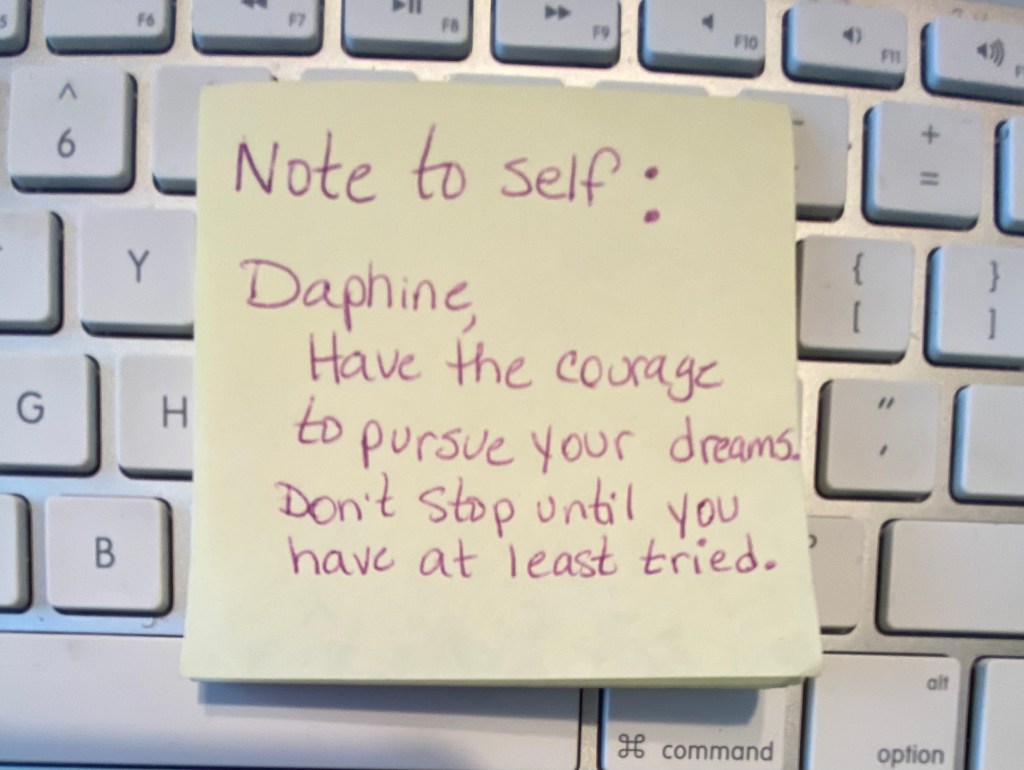 F6
F7
F8
F9
F10
F11
^
6
+
=
Y
{
[
}
]
G
H
"
'
B
alt
option
⌘ command
Note to self:
Daphine,
Have the courage
to pursue your dreams.
Don't stop until you
have at least tried.